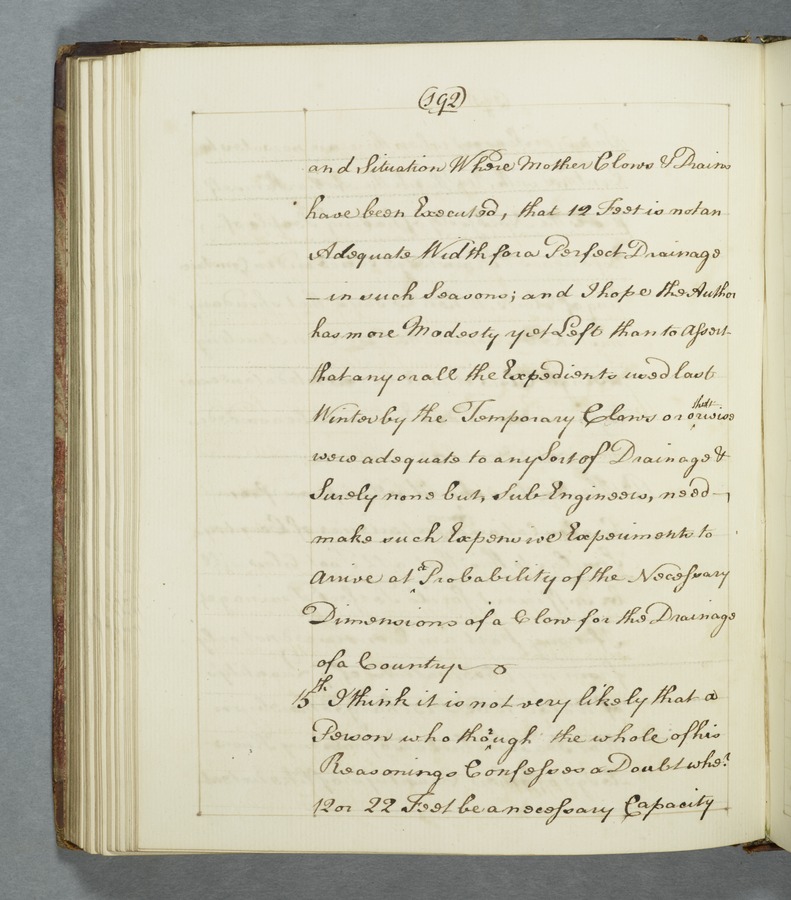 (192)
and Situation Where mother Clows & Drains
have been Executed, that 12 Feet is not an
Adequate Width for a Perfect Drainage
– in such Seasons; and I hope the Author
has more Modesty yet Left than to Assert
that any or all the Expedients used last
Winter by the Temporary Clows or otherwise
were adequate to any Sort of Drainage &
Surely none but, Sub Engineers, need –
make such Expensive Experiments to
arrive at a Probability of the Necessary
Dimensions of a Clow for the Drainage
of a Country
15th I think it is not very likely that a
Person who through the whole of his
Reasonings Confesses a Doubt whe:r
12 or 22 Feet be a necessary Capacity